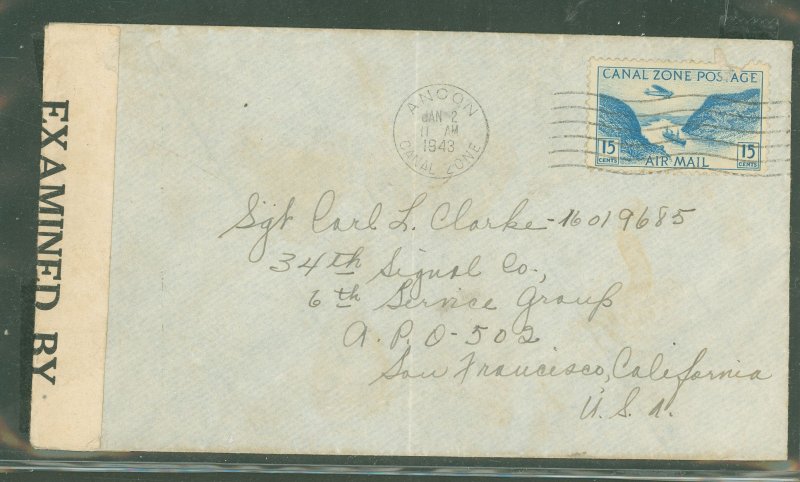 EXAMINED BY
ANCON
JAN 2
11 AM
1943
CANAL ZONE
CANAL ZONE POSTAGE
15 CENTS
AIR MAIL
15 CENTS
Sgt Carl L. Clarke - 16019685
34th Signal Co.,
6th Service Group
A.P.O - 502
San Francisco, California
U.S.A.